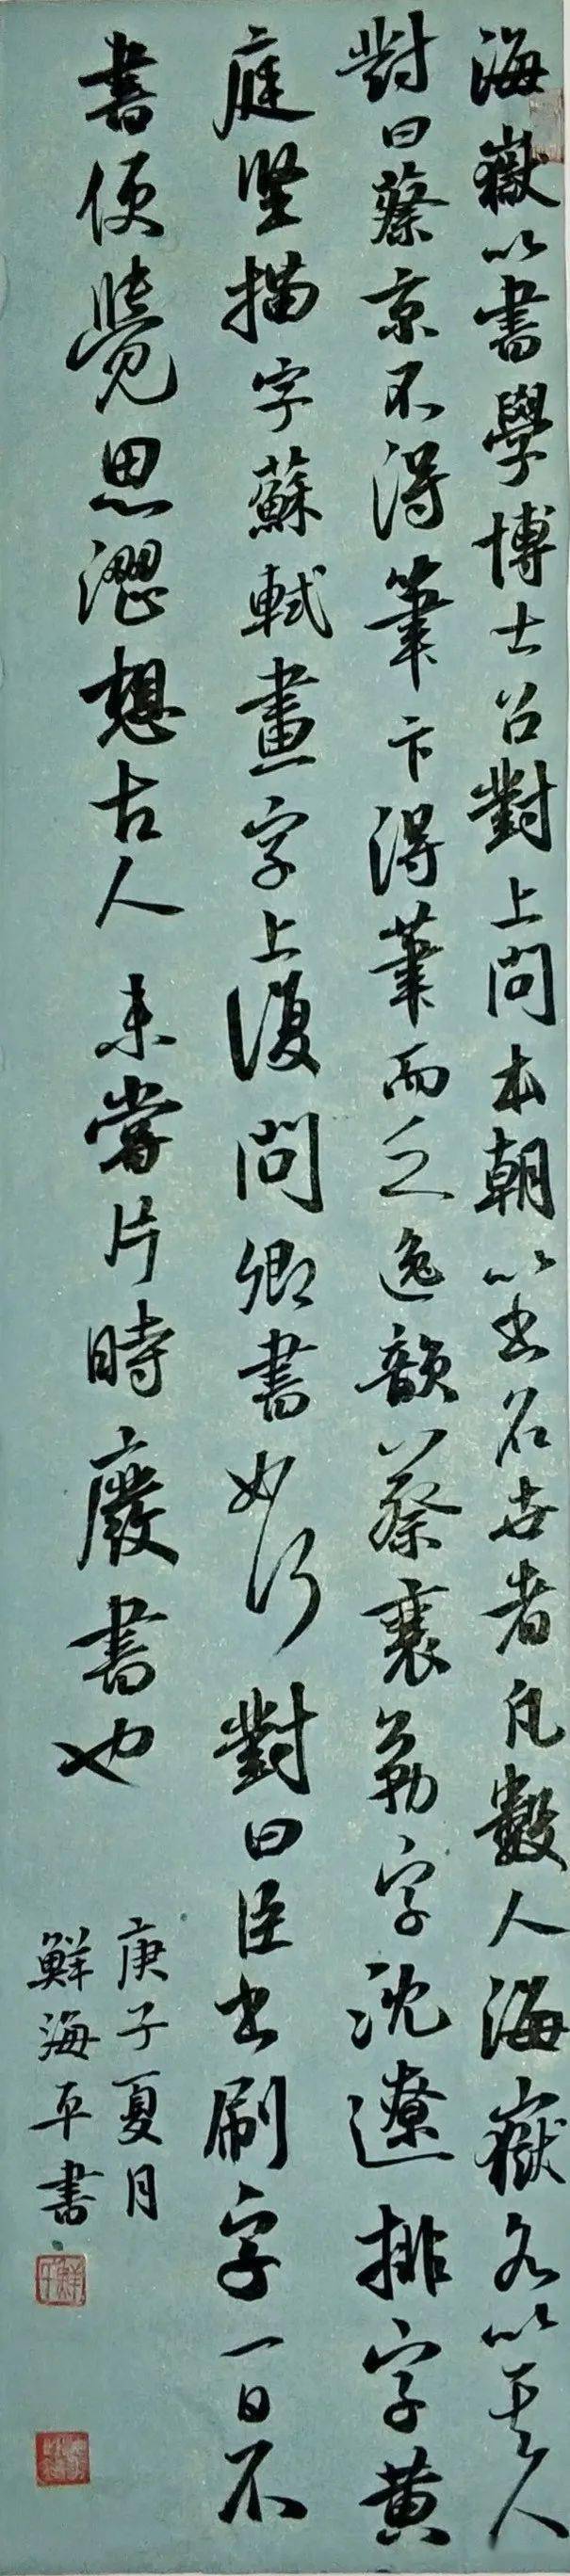 海嶽以書學博士召對上問本朝以书名世者凡數人海嶽各以其人
對曰蔡京不得筆卞得筆而乏逸韻蔡襄勒字沈遼排字黄
庭坚描字蘇軾畫字上復問卿書如何對曰臣书刷字一日不
書便覺思澀想古人未嘗片時廢書也
庚子夏月
鮮海平書